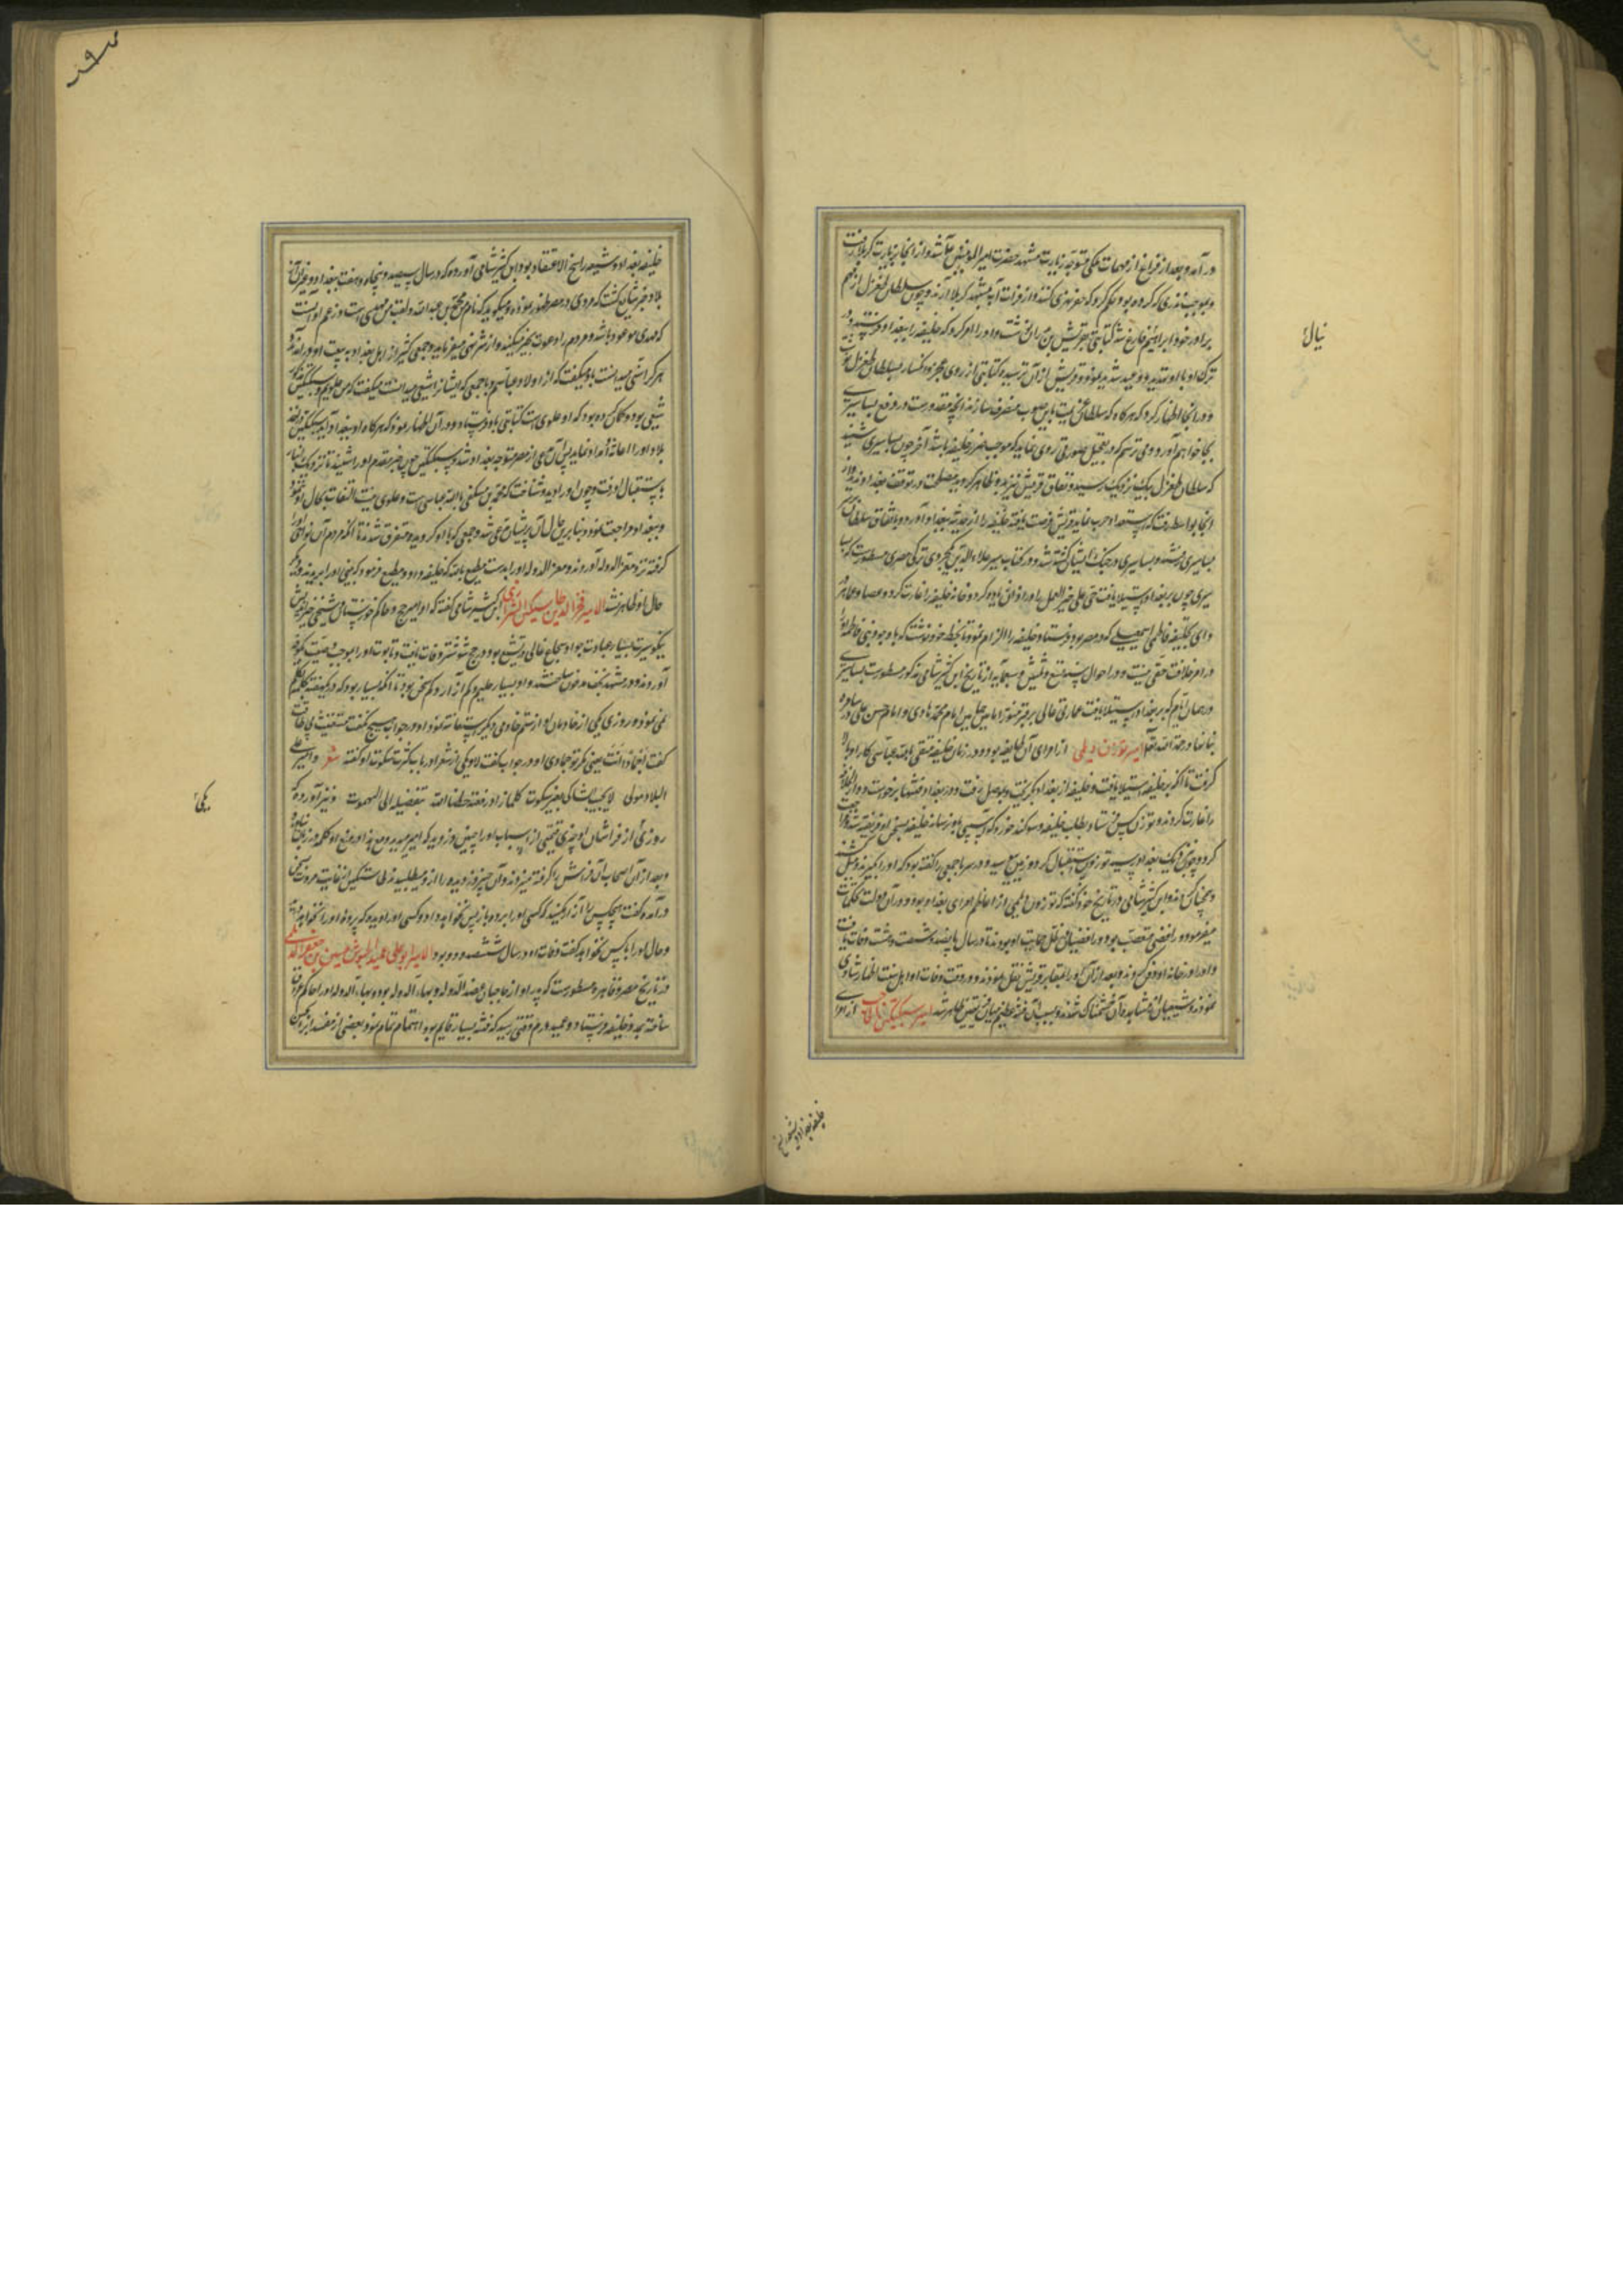 در آمد و بعد از فراغ از مهمات ملکی متوجه زیارت مشهد حضرت امیر المؤمنین شد و از آنجا بزیارت کربلا رفت
و بموجب نذری که کرده بود حکم کرد که حفر نهری کنند و از فرات آب بمشهد کربلا آرند و چون سلطان طغرل از مهم
برادر خود ابراهیم فارغ شد کتابتی بقریش بن بدران نوشت و او را امر کرد که خلیفه را ببغداد فرستد و
ترک او با او تهدید و وعید شدید نمود و قریش از آن ترسید و کتابتی از روی عجز و انکسار بسلطان طغرل
و در آنجا اظهار کرد که هرگاه که سلطان باین صوب منصرف سازند آنچه مقدور است در دفع بساسیری
بجا خواهم آورد و می ترسم که در تعجیل صورتی روی نماید که موجب ضرر خلیفه باشد آخر چون بساسیری شنید
که سلطان طغرل بیک نزدیک رسید و نفاق قریش نیز بدو ظاهر گردید مصلحت در توقف بغداد ندید و از
آنجا بواسط رفت که استعداد حرب نماید قریش فرصت یافته خلیفه را از حدیثه ببغداد آورد و باتفاق سلطان
بساسیری شد و بساسیری در جنگ ایشان کشته شد و در کتاب میر علاء الدین ترکی مصری مسطورست که بسا
سیری چون بر بغداد استیلا یافت حی علی خیر العمل را در اذان زیاده کرد و خانه خلیفه را غارت کرد و عصا و عمامه
و ردای بخلیفه فاطمی اسمعیلی که در مصر بود فرستاد و خلیفه را الزام نمود تا بخط خود نوشت که با وجود بنی فاطمه او را
در امر خلافت حقی نیست و در احوال سنه تسع و ثلثین و سبعمایه از تاریخ ابن کثیر شامی مذکور مسطورست بساسیری
در همان ایام که بر بغداد استیلا یافت عمارتی عالی بر قبر منور امامین امام محمد هادی و امام حسن علی در سامره
بنا نهاد رحمة الله امیر توزون دیلمی از امرای آن طایفه بود و در زمان خلیفه متقی بالله عباسی کار او بالا
گرفت تا آنکه بر خلیفه استیلا یافت و خلیفه از بغداد گریخت و بموصل رفت و در بغداد فتنه برخواست و دار الخلافه
را غارت کردند و توزون کس فرستاد بطلب خلیفه و سوگند خورد که آسیبی باو نرساند خلیفه بسخن او فریفته شد و مراجعت
کرد و چون نزدیک بغداد رسید توزون استقبال کرد و زمین ببوسید و در سر با جمعی را گفته بود که او را بگیرند و میل کشند
و همچنان کردند و ابن کثیر شامی در تاریخ خود گفته که توزون دیلمی از اعاظم امرای بغداد بود و در آن دولت
میفرمود و رافضی متعصب بود و رافضیان در ظل حمایت او بودند تا در سال پانصد و شصت و هشت وفات یافت
و او را در خانه او دفن کردند و بعد از آن او را بمقابر قریش نقل نمودند و در وقت وفات او اهل سنت اظهار شادی
نمودند و شیعیان از مشاهده آن خشمناک شدند و بسبب آن فتنه عظیم میان فریقین ظاهر شد امیر سبکتکین از امرای
نیال
خلیفه بغداد و شیعه راسخ
خلیفه بغداد و شیعه راسخ الاعتقاد بود ابن کثیر شامی آورده که در سال سیصد و پنجاه و هفت ببغداد و غیر آن از
بلاد خبر شایع گشت که مردی در مصر ظهور نموده و میگوید که نام من محمد بن عبد الله و لقب من مهدی است و زعم او آنست
که مهدی موعود باشد و مردم را دعوت بخیر میکند و از شر نهی میفرماید و جمعی کثیر از اهل بغداد به بیعت او در آمدند و
هر که را سنی میدانست باو میگفت که از اولاد عباسم و با جمعی که ایشانرا شیعی میدانست میگفت که من علویم و سبکتکین
شیعی بود و گمان کرده بود که او علوی است کتابتی باو فرستاد و در آن اظهار نمود که هرگاه او ببغداد آید سبکتکین
بلاد او را اعانت و امداد نماید پس آن مدعی از مصر متوجه بغداد شد و سبکتکین چون خبر مقدم او را شنید تا نزدیک انبار
باستقبال او رفت و چون او را دید و شناخت که محمد بن مستکفی بالله عباسی است و علوی نیست التفات بحال او ننمود
و ببغداد مراجعت نمود و بنا برین حال آن مدعی پریشان شد و جمعی که با او گرویده متفرق شدند تا آنکه مردم آن نواحی او را
گرفته نزد معز الدوله آوردند و معز الدوله او را بدست مطیع بالله که خلیفه داد و مطیع فرمود که بینی او را بریدند و
حال او ظاهر نشد الامیر فخر الدین ابن کثیر شامی گفته که او امیر حج و حاکم خوزستان شیخی خیر اندیش
نیکو سیرت بسیار عبادت جواد شجاع غالی در تشیع بود و در شوشتر وفات یافت و تابوت او را بموجب وصیت بکوفه
آوردند و در مشهد نجف مدفون ساختند و او بسیار حلیم و کم آزار و کم سخن بود تا آنکه بسیار بود که در یکهفته بیکلمه تکلم
نمی نمود و روزی یکی از خادمان او از ستم خادمی دیگر استغاثه نمود او در جواب هیچ نگفت مستغیث بی طاقت
گفت اجماد انت یعنی مگر تو جمادی او در جواب گفت لا و یکی از شعرا در باب کثرت سکوت او گفته شعر و امیر علی
البلاد مولی لا یجیب الشاکی بغیر سکوت کلما زاد رفعة حطنا الله بتفضیله الی البهموت و نیز آورده که
روزی از فراشان او چیزی قیمتی از اسباب او را
و بعد از آن اصحاب آن فراش را گرفته میزدند و آن چیز دزدیده را از و میطلبیدند طاشتکین از غایت مروت بسخن
در آمد و گفت هیچکس را آزار مکنید که کسی او را برده و باز پس نخواهد داد و کسی او را دیده که پرده او را نخواهد درید
و حال او را باز پس نخواهد گفت وفات او در سال ششصد و دو بود الامیر ابو علی عمید الجیوش حسین بن جعفر الدیلمی
در تاریخ مصر و قاهره مسطورست که پدر او از حاجبان عضد الدوله و بهاء الدوله بود و بهاء الدوله او را حاکم عراق
ساخته به خلیفه فرستاد و عمید در م وقتی رسید که فتنه بسیار قایم بود اهتمام تمام نمود و بعضی از مفسدانرا
یکی